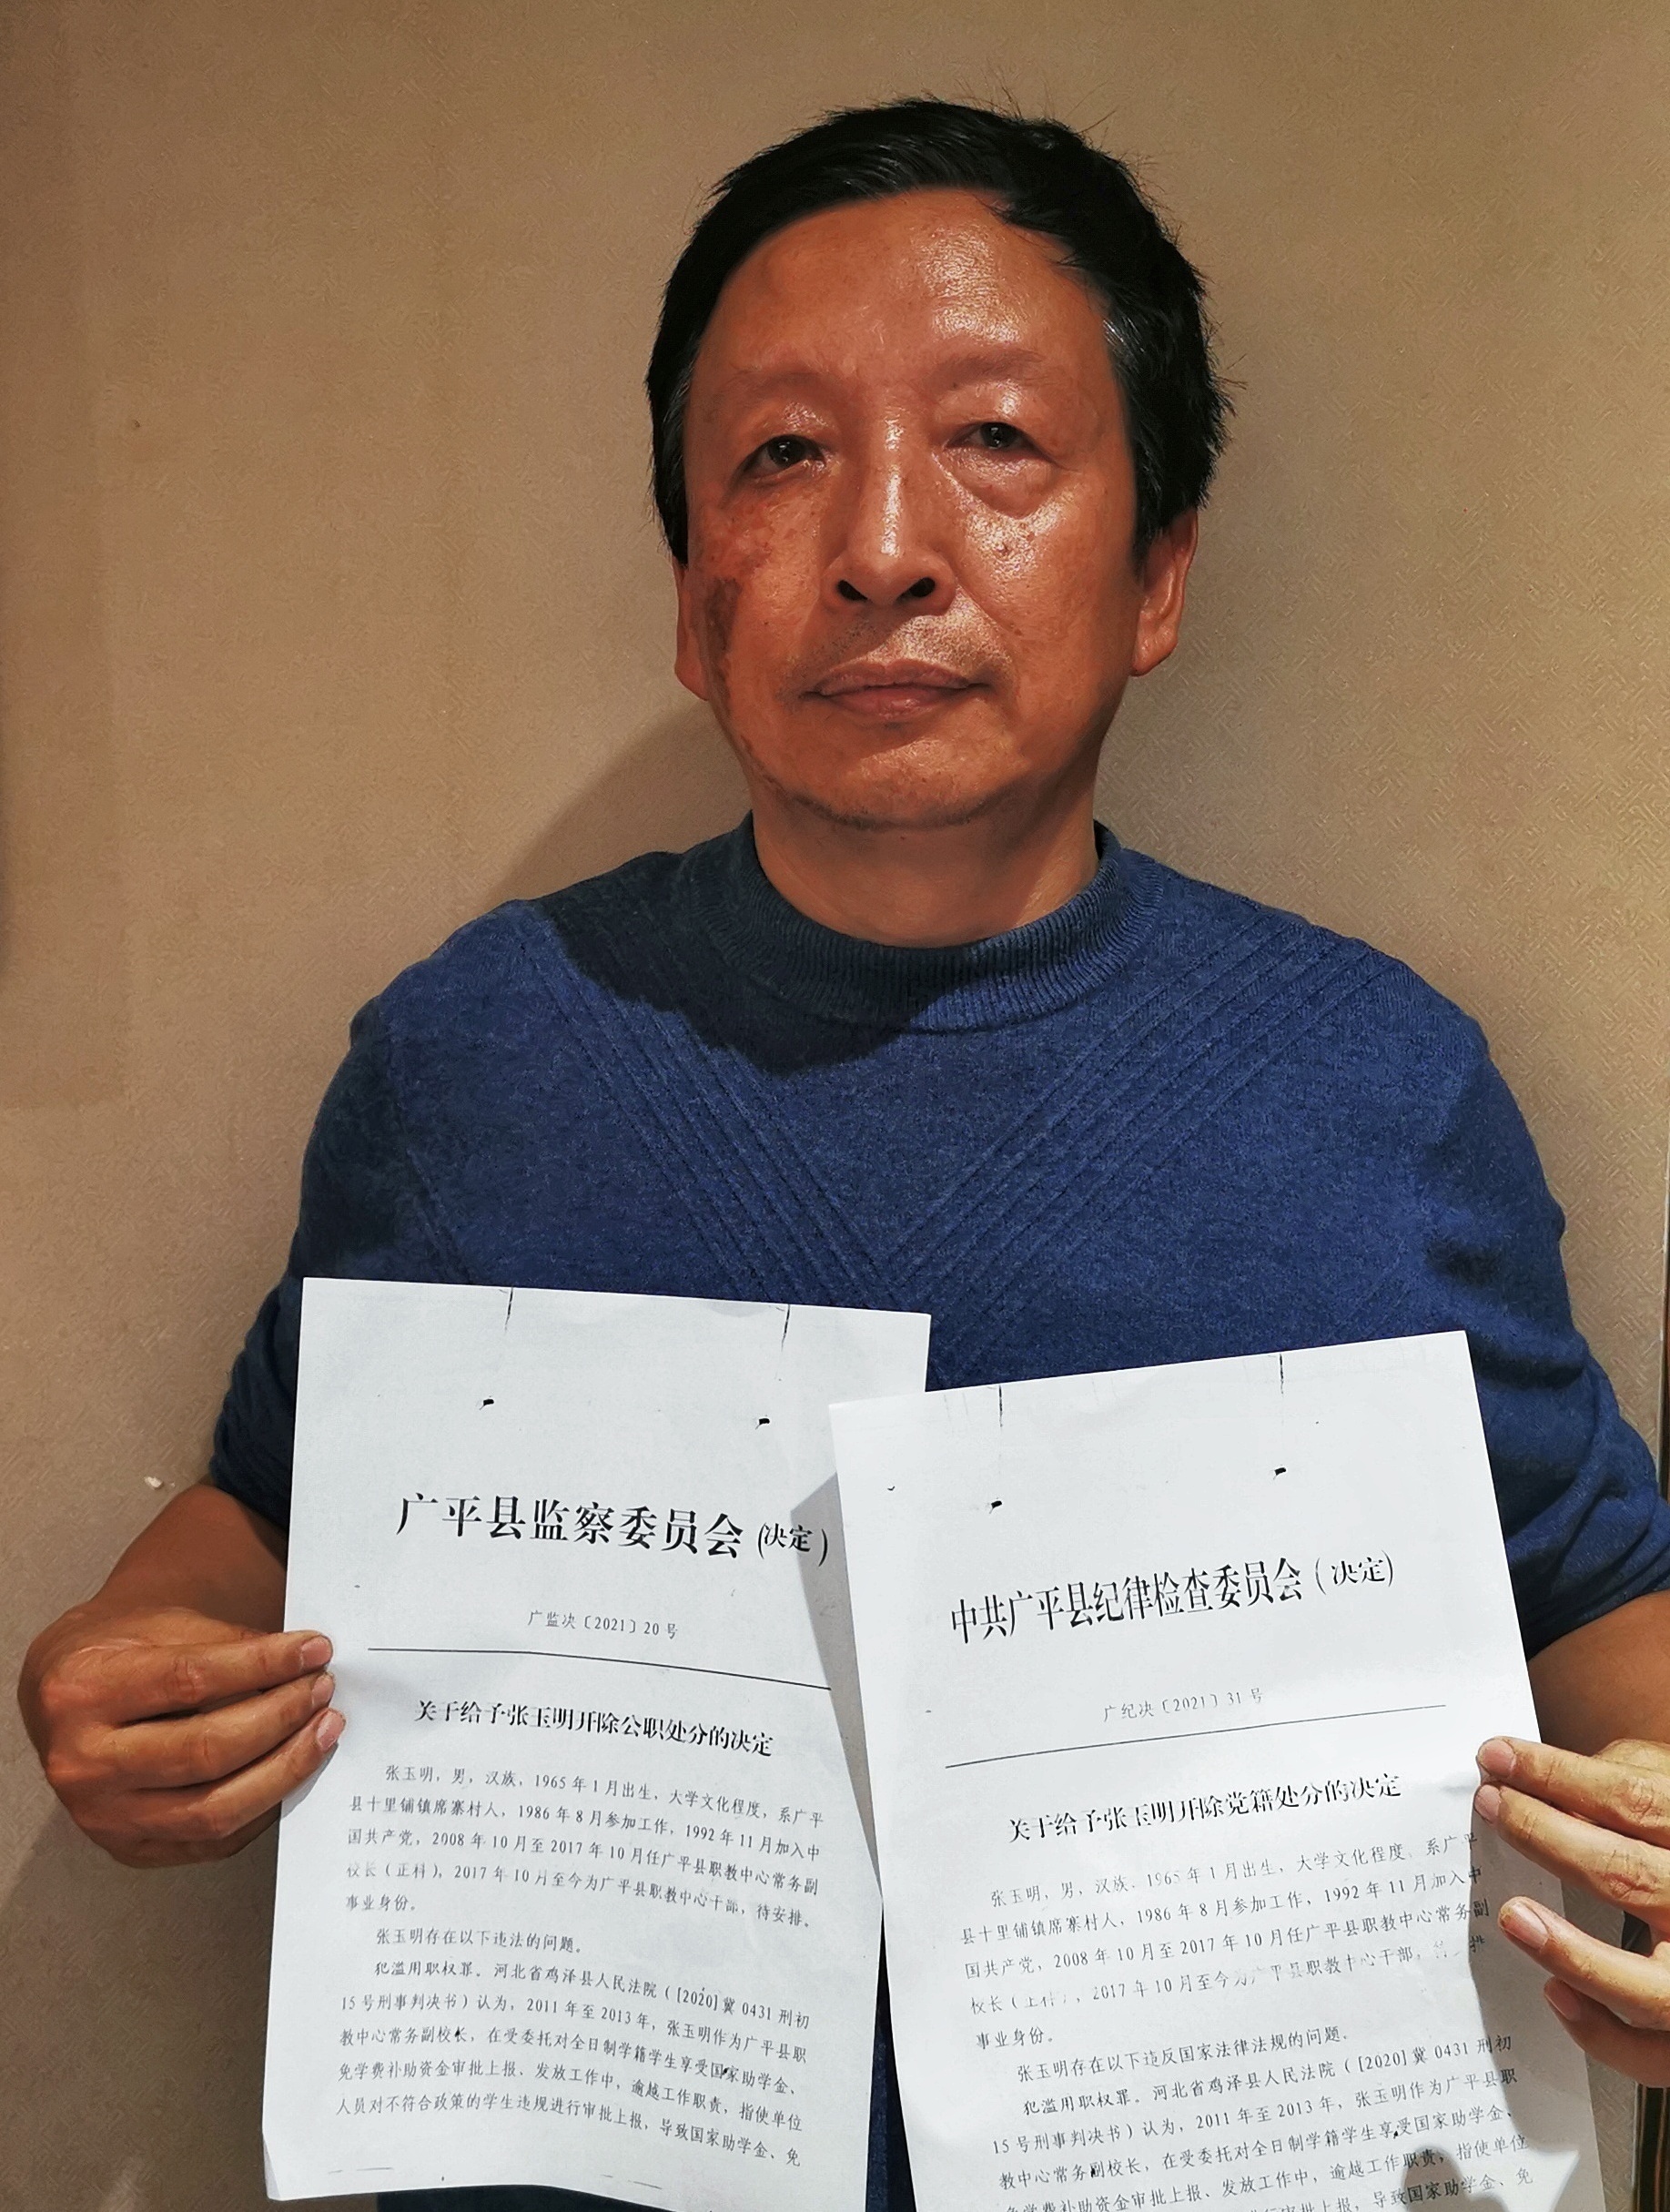 广平县监察委员会（决定）
广监决〔2021〕20号
关于给予张玉明开除公职处分的决定
张玉明，男，汉族，1965年1月出生，大学文化程度，系广平
县十里铺镇席寨村人，1986年8月参加工作，1992年11月加入中
国共产党，2008年10月至2017年10月任广平县职教中心常务副
校长（正科），2017年10月至今为广平县职教中心干部，待安排。
事业身份。
张玉明存在以下违法的问题。
犯滥用职权罪。河北省鸡泽县人民法院（[2020]冀0431刑初
15号刑事判决书）认为，2011年至2013年，张玉明作为广平县职
教中心常务副校长，在受委托对全日制学籍学生享受国家助学金、
免学费补助资金审批上报、发放工作中，逾越工作职责，指使单位
人员对不符合政策的学生违规进行审批上报，导致国家助学金、免
中共广平县纪律检查委员会（决定）
广纪决〔2021〕31号
关于给予张玉明开除党籍处分的决定
张玉明，男，汉族，1965年1月出生，大学文化程度，系广平
县十里铺镇席寨村人，1986年8月参加工作，1992年11月加入中
国共产党，2008年10月至2017年10月任广平县职教中心常务副
校长（正科），2017年10月至今为广平县职教中心干部，
事业身份。
张玉明存在以下违反国家法律法规的问题．
犯滥用职权罪。河北省鸡泽县人民法院（[2020]冀0431刑初
15号刑事判决书）认为，2011年至2013年，张玉明作为广平县职
教中心常务副校长，在受委托对全日制学籍学生享受国家助学金、
免学费补助资金审批上报、发放工作中，逾越工作职责，指使单位
进行审批上报，导致国家助学金、免